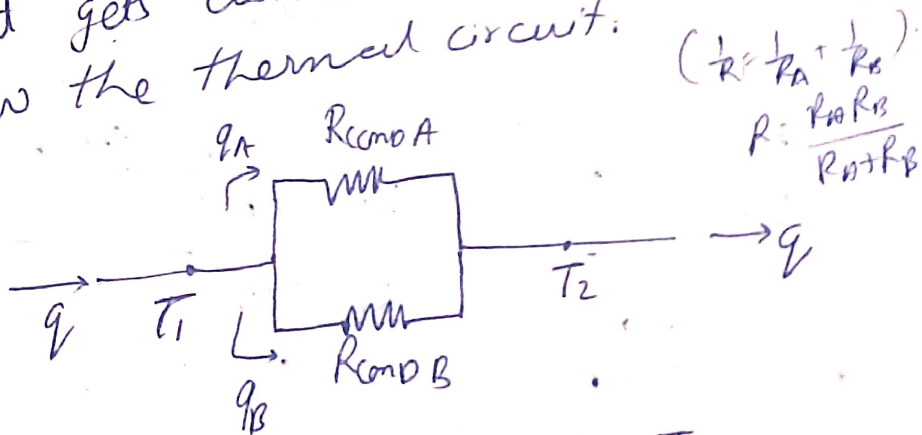 gets
the thermal circuit.
(1/R = 1/RA + 1/RB)
R = RARB / RA+RB
qA
RCOND A
q
T1
T2
q
RCOND B
qB